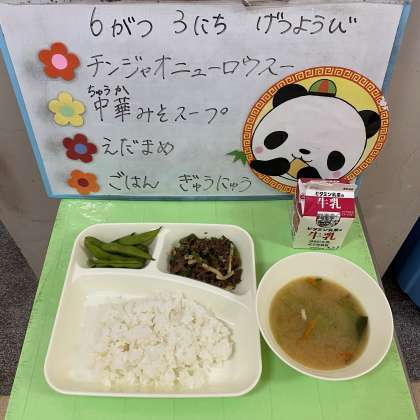 6がつ 3にち げつようび
チンジャオニューロウスー
ちゅうか
中華みそスープ
えだまめ
ごはん ぎゅうにゅう
ビタミン乳業の
牛乳
ビタミン乳業の
牛乳